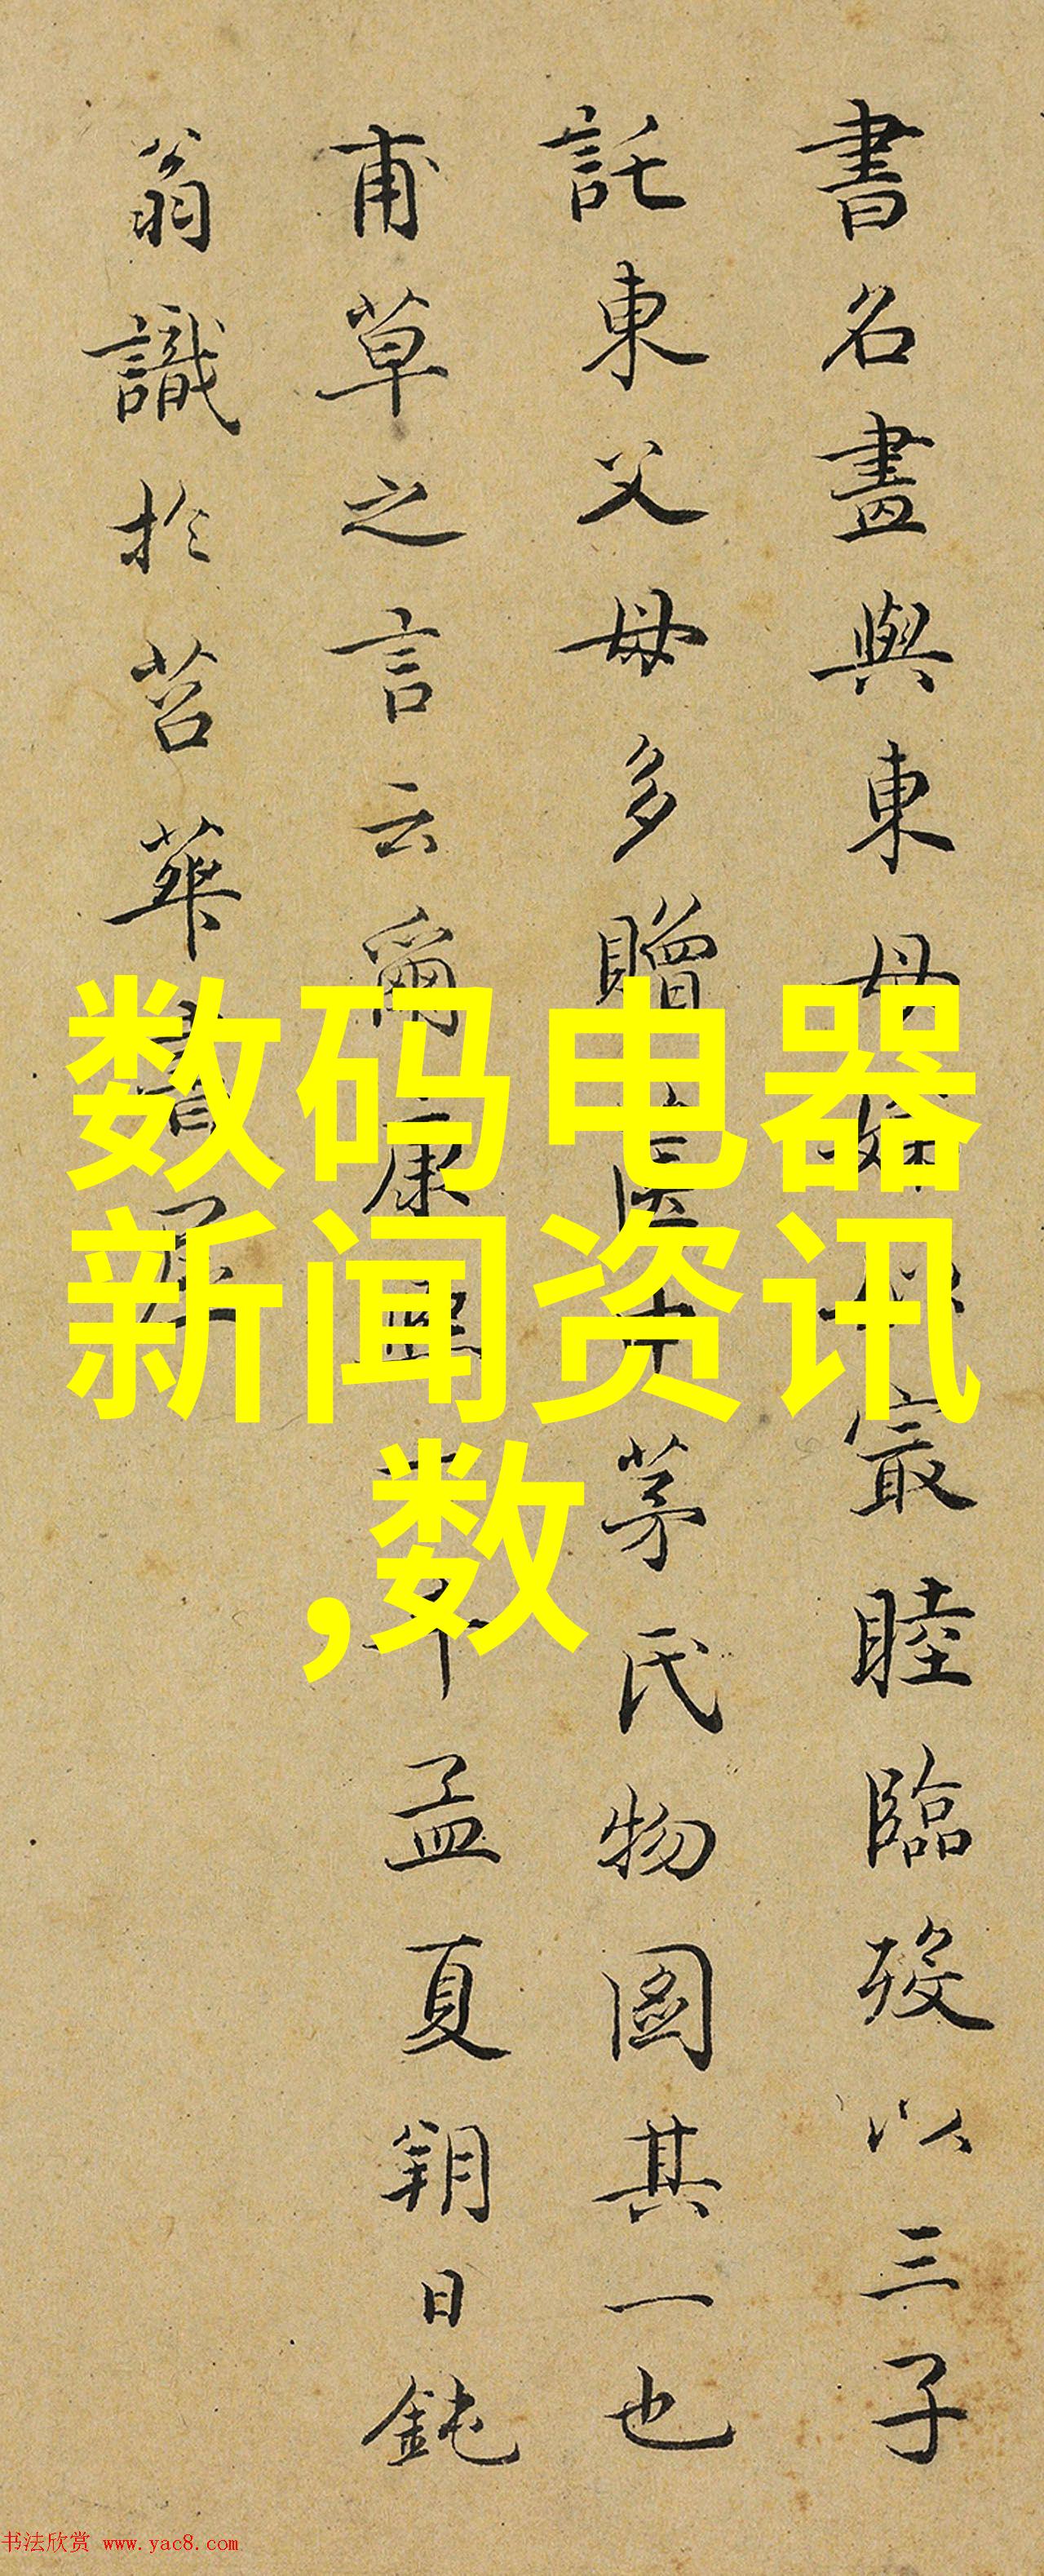 書名畫與東母
最睦臨歿以三子
託東父母多贈
茅氏物圖其一也
甫草之言云爾康
孟夏朔日鈍
翁識於苕華書屋
数码电器
新闻资讯
,数
书法欣赏 www.yac8.com